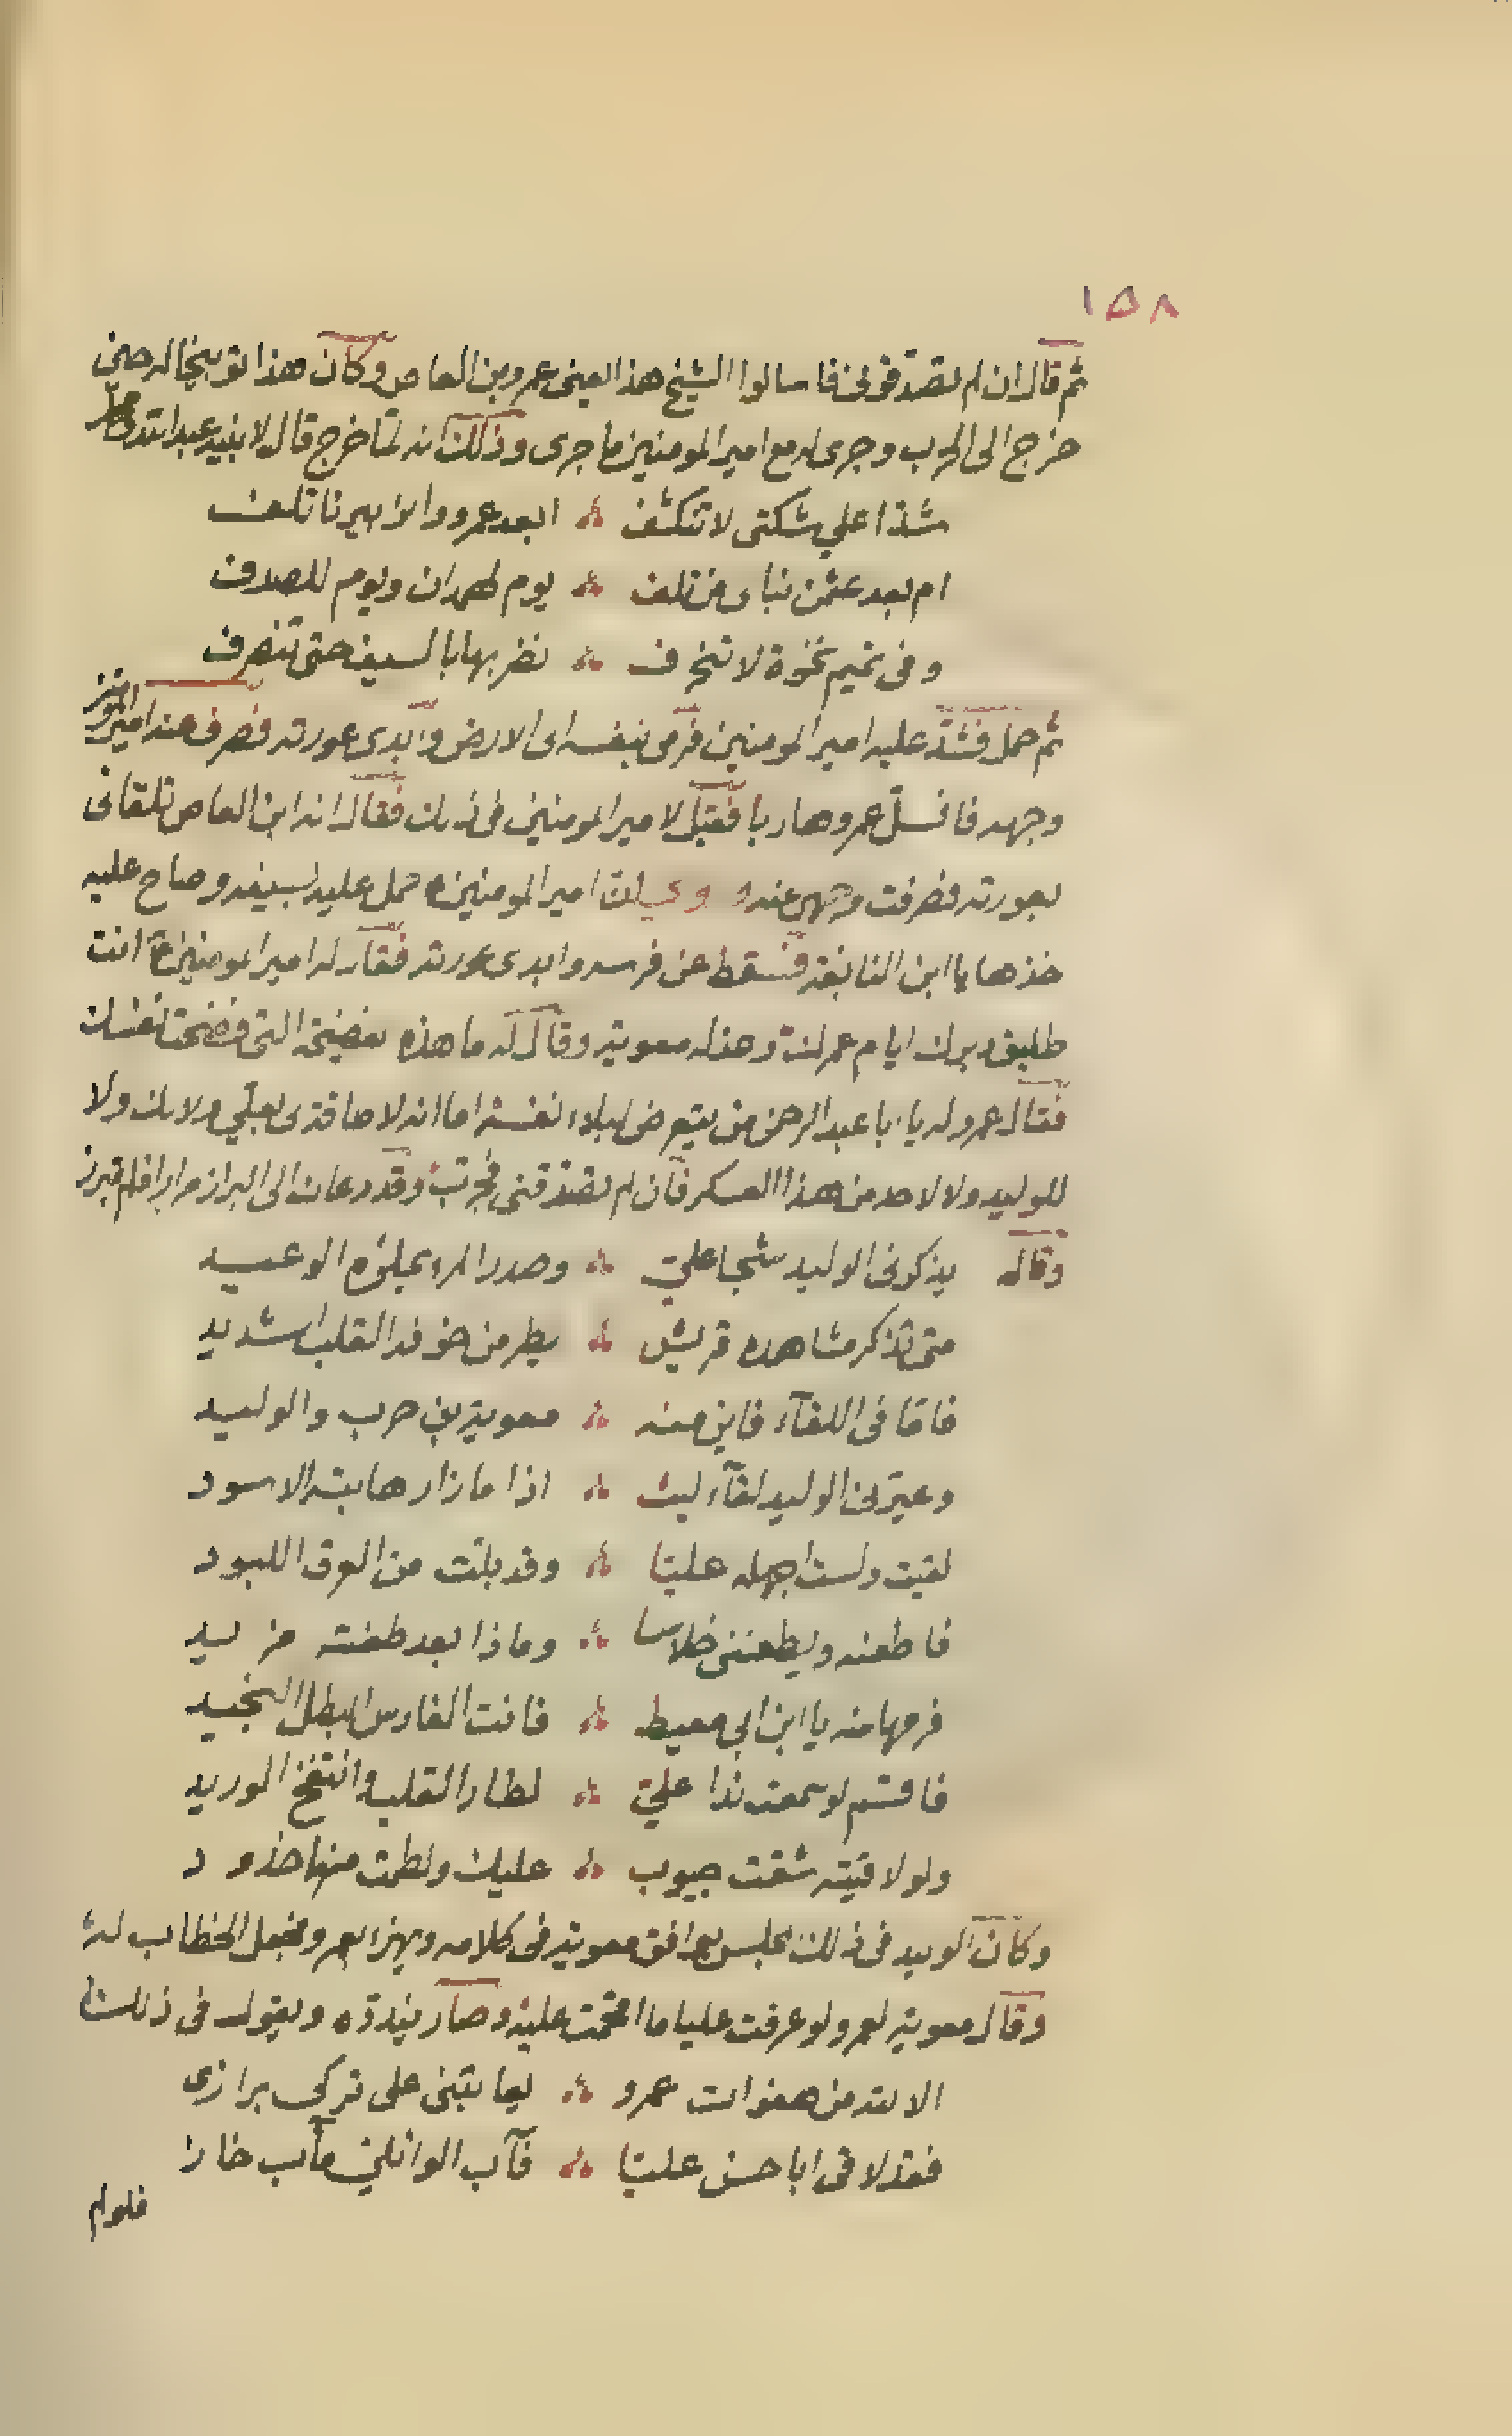 ١٥٨
ثم قال ان لم تصدقونى فاسالوا الشيخ هذا يعنى عمرو بن العاص وكان هذا توبيخا له حين
خرج الى الحرب وجرى له مع امير المومنين ما جرى وذلك انه لما خرج قال لابنيه عبد الله
شدا على شكتى لا تنكشف ؞ ابعد عمرو والزبير ناتلف
ام بعد عثمن نبالى من تلف ؞ يوم لهمدان ويوم للصدف
وفى تميم نخوة لا تنحرف ؞ نضربها بالسيف حتى تنصرف
ثم حمل فشد عليه امير المومنين فرمى بنفسه الى الارض وابدى عورته فصرف عنه امير المومنين
وجهه فانسل عمرو هاربا فقيل لامير المومنين فى ذلك فقال انه ابن العاص تلقانى
بعورته فصرفت وجهى عنه امير المومنين حمل عليه بسيفه وصاح عليه
خذها يا ابن النابغة فسقط عن فرسه وابدى عورته فقال له امير المومنين انت
طليق دبرك ايام عمرك وعذله معوية وقال له ما هذه الفضيحة التى فضحت نفسك
فقال عمرو له يا با عبد الرحمن من يتعرض لبلاء نفسه اما انه لا طاقة لى بعلي ولا لك ولا
للوليد ولا لاحد من هذا العسكر فان لم تصدقنى فجرب وقد دعاك الى البراز مرارا فلم تبرز
وقال يذكرنى الوليد شجا علي ؞ وصدر المرء يملؤه الوعيد
متى تذكر مشاهده قريش ؞ يطر من خوفه القلب الشديد
فاما فى اللقاء فاين منه ؞ معوية بن حرب والوليد
وعيرنى الوليد لقاء ليث ؞ اذا ما زار هابته الاسود
لقيت ولست اجهله عليا ؞ وقد بلت من العرق اللبود
فاطعنه ويطعننى خلاسا ؞ وماذا بعد طعنته مزيد
فرمها منه يا ابن ابى معيط ؞ فانت الفارس البطل النجيد
فاقسم لو سمعت ندا علي ؞ لطار القلب وانتفخ الوريد
ولو لاقيته شقت جيوب ؞ عليك ولطمت منها خدود
وكان الوليد فى ذلك المجلس يوافق معوية فى كلامه ويهزء بعمرو ويجعل الخطاب له
وقال معوية لعمرو لو عرفت عليا ما اقتحمت عليه وصار يندوه ويقول فى ذلك
الا لله من هفوات عمرو ؞ يعاتبنى على تركى برازى
فقد لاقى ابا حسن عليا ؞ فآب الوائلي مآب خاز
فلولم